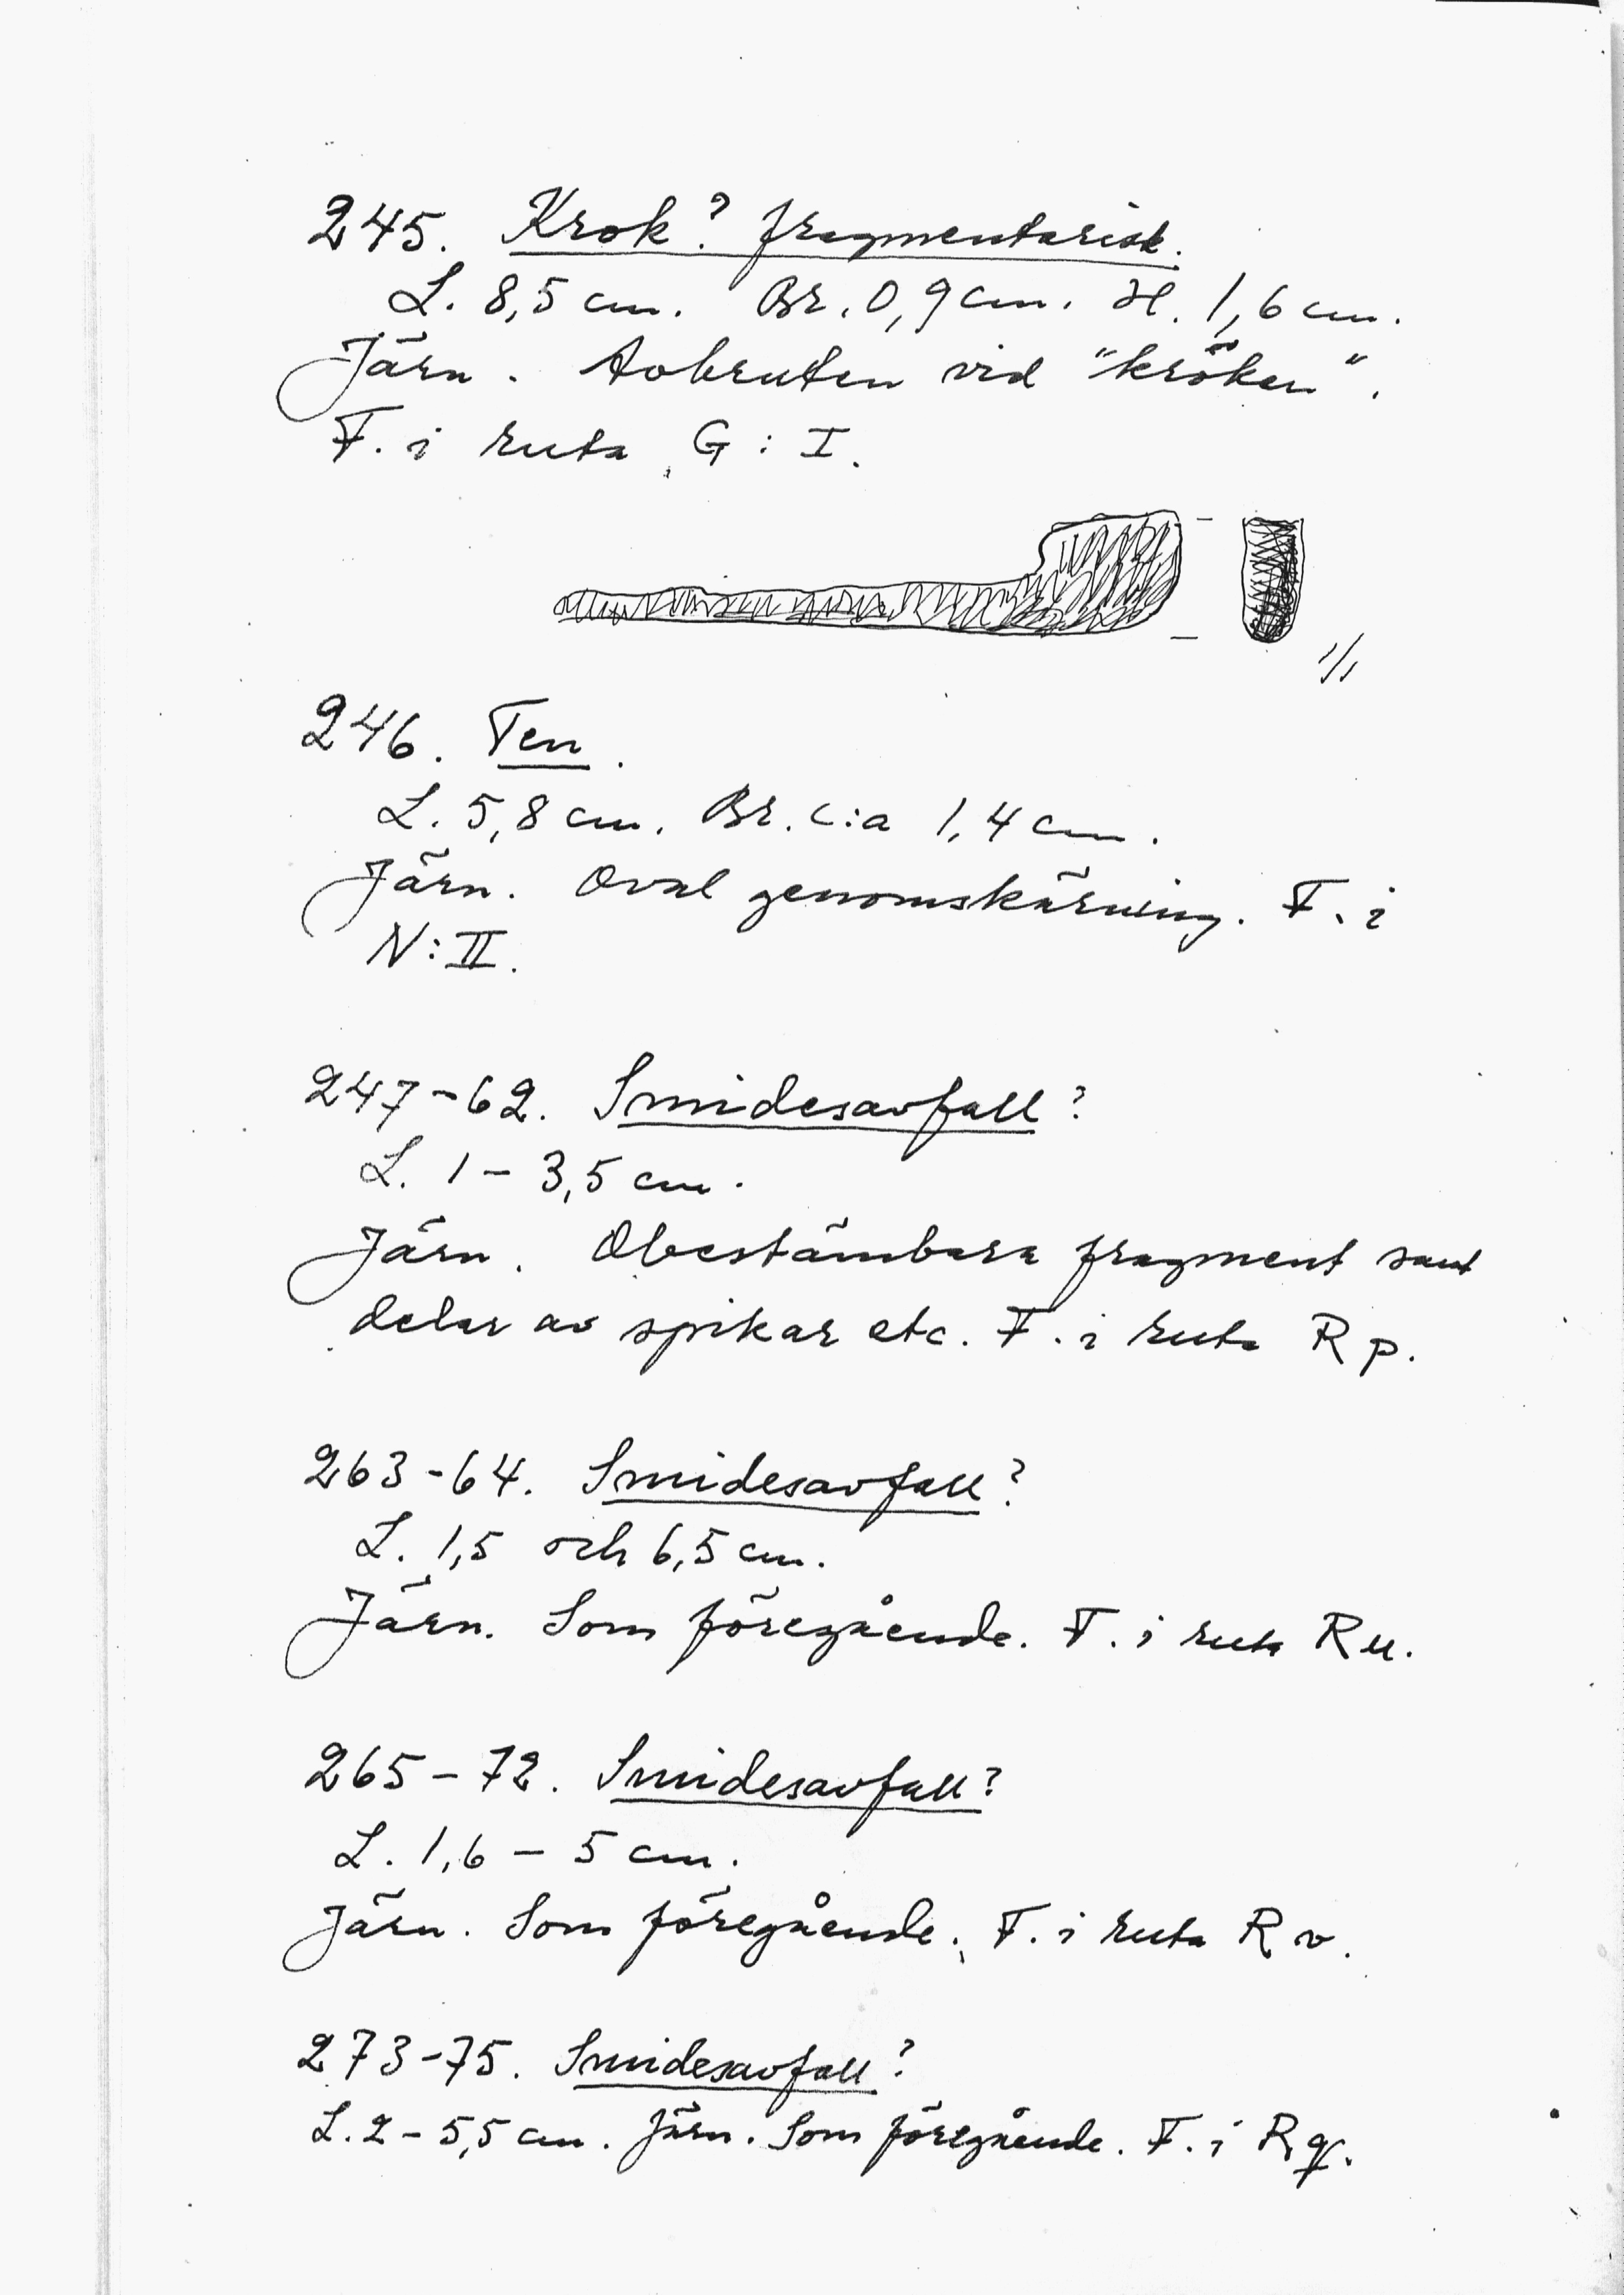 245. Krok? fragmentarisk.
L. 8,5 cm. Br. 0,9 cm. H. 1,6 cm.
Järn. Avbruten vid "kröken".
F. i ruta G : I.
1/1
246. Ten.
L. 5,8 cm. Br. c:a 1,4 cm.
Järn. Oval genomskärning. F. i
N : II.
247-62. Smidesavfall?
L. 1 - 3,5 cm.
Järn. Obestämbara fragment samt
delar av spikar etc. F. i ruta R p.
263-64. Smidesavfall?
L. 1,5 och 6,5 cm.
Järn. Som föregående. F. i ruta R u.
265-72. Smidesavfall?
L. 1,6 - 5 cm.
Järn. Som föregående. F. i ruta R v.
273-75. Smidesavfall?
L. 2 - 5,5 cm. Järn. Som föregående. F. i R q.